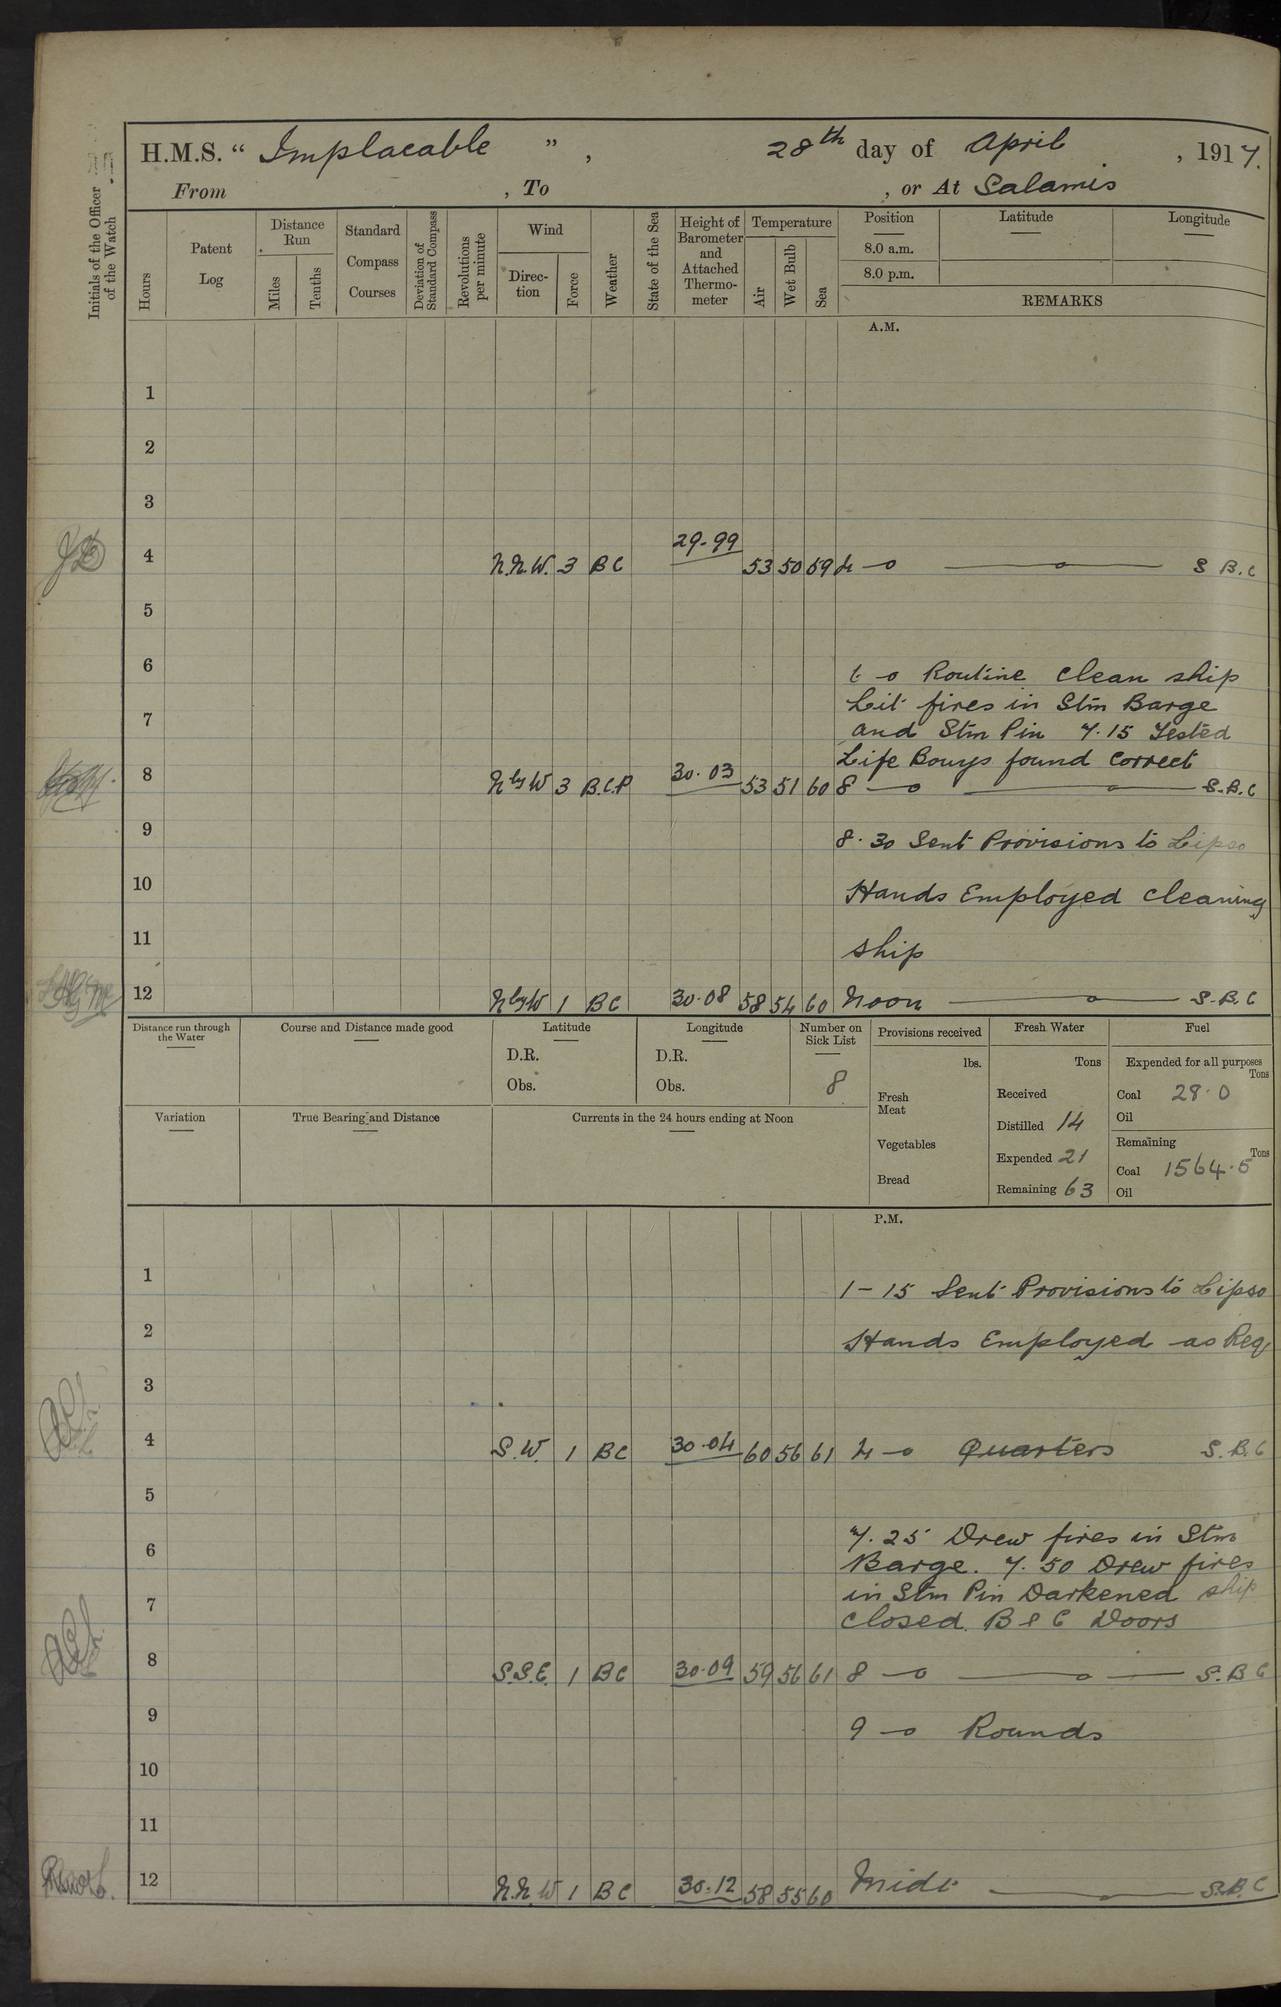 H.M.S. “ Implacable ” , 28th day of April , 1917.
From , To , or At Salamis
Initials of the Officer of the Watch
Hours
Patent Log
Distance Run
Miles
Tenths
Standard Compass Courses
Deviation of Standard Compass
Revolutions per minute
Wind
Direc-tion
Force
Weather
State of the Sea
Height of Barometer and Attached Thermo-meter
Temperature
Air
Wet Bulb
Sea
Position
8.0 a.m.
8.0 p.m.
Latitude
Longitude
REMARKS
A.M.
1
2
3
4 N.N.W. 3 BC 29-99 53 50 59 4 -o S B.C
5
6 6 -o Routine Clean ship
Lit fires in Stm Barge
7 and Stm Pin 7.15 Tested
Life Bouys found Correct
8 N by W 3 B.C.P 30.03 53 51 60 8 -o S.B.C
9 8.30 Sent Provisions to Lipso
10 Hands Employed Cleaning
11 Ship
12 N by W 1 BC 30.08 58 54 60 Noon S.B.C
Distance run through the Water
Course and Distance made good
Latitude
D.R.
Obs.
Longitude
D.R.
Obs.
Number on Sick List
8
Provisions received
lbs.
Fresh Meat
Vegetables
Bread
Fresh Water
Tons
Received
Distilled 14
Expended 21
Remaining 63
Fuel
Expended for all purposes
Tons
Coal 28.0
Oil
Remaining
Tons
Coal 1564.5
Oil
Variation
True Bearing and Distance
Currents in the 24 hours ending at Noon
P.M.
1 1-15 Sent Provisions to Lipso
2 Hands Employed as Req
3
4 S.W. 1 BC 30.04 60 56 61 4 -o Quarters S.B.C
5
6 7.25 Drew fires in Stm
Barge. 7.50 Drew fires
7 in Stm Pin Darkened ship
Closed B & C Doors
8 S.S.E. 1 BC 30.09 59 56 61 8 -o S.B C
9 9 -o Rounds
10
11
12 N.N W 1 BC 30.12 58 55 60 Midt S.B.C